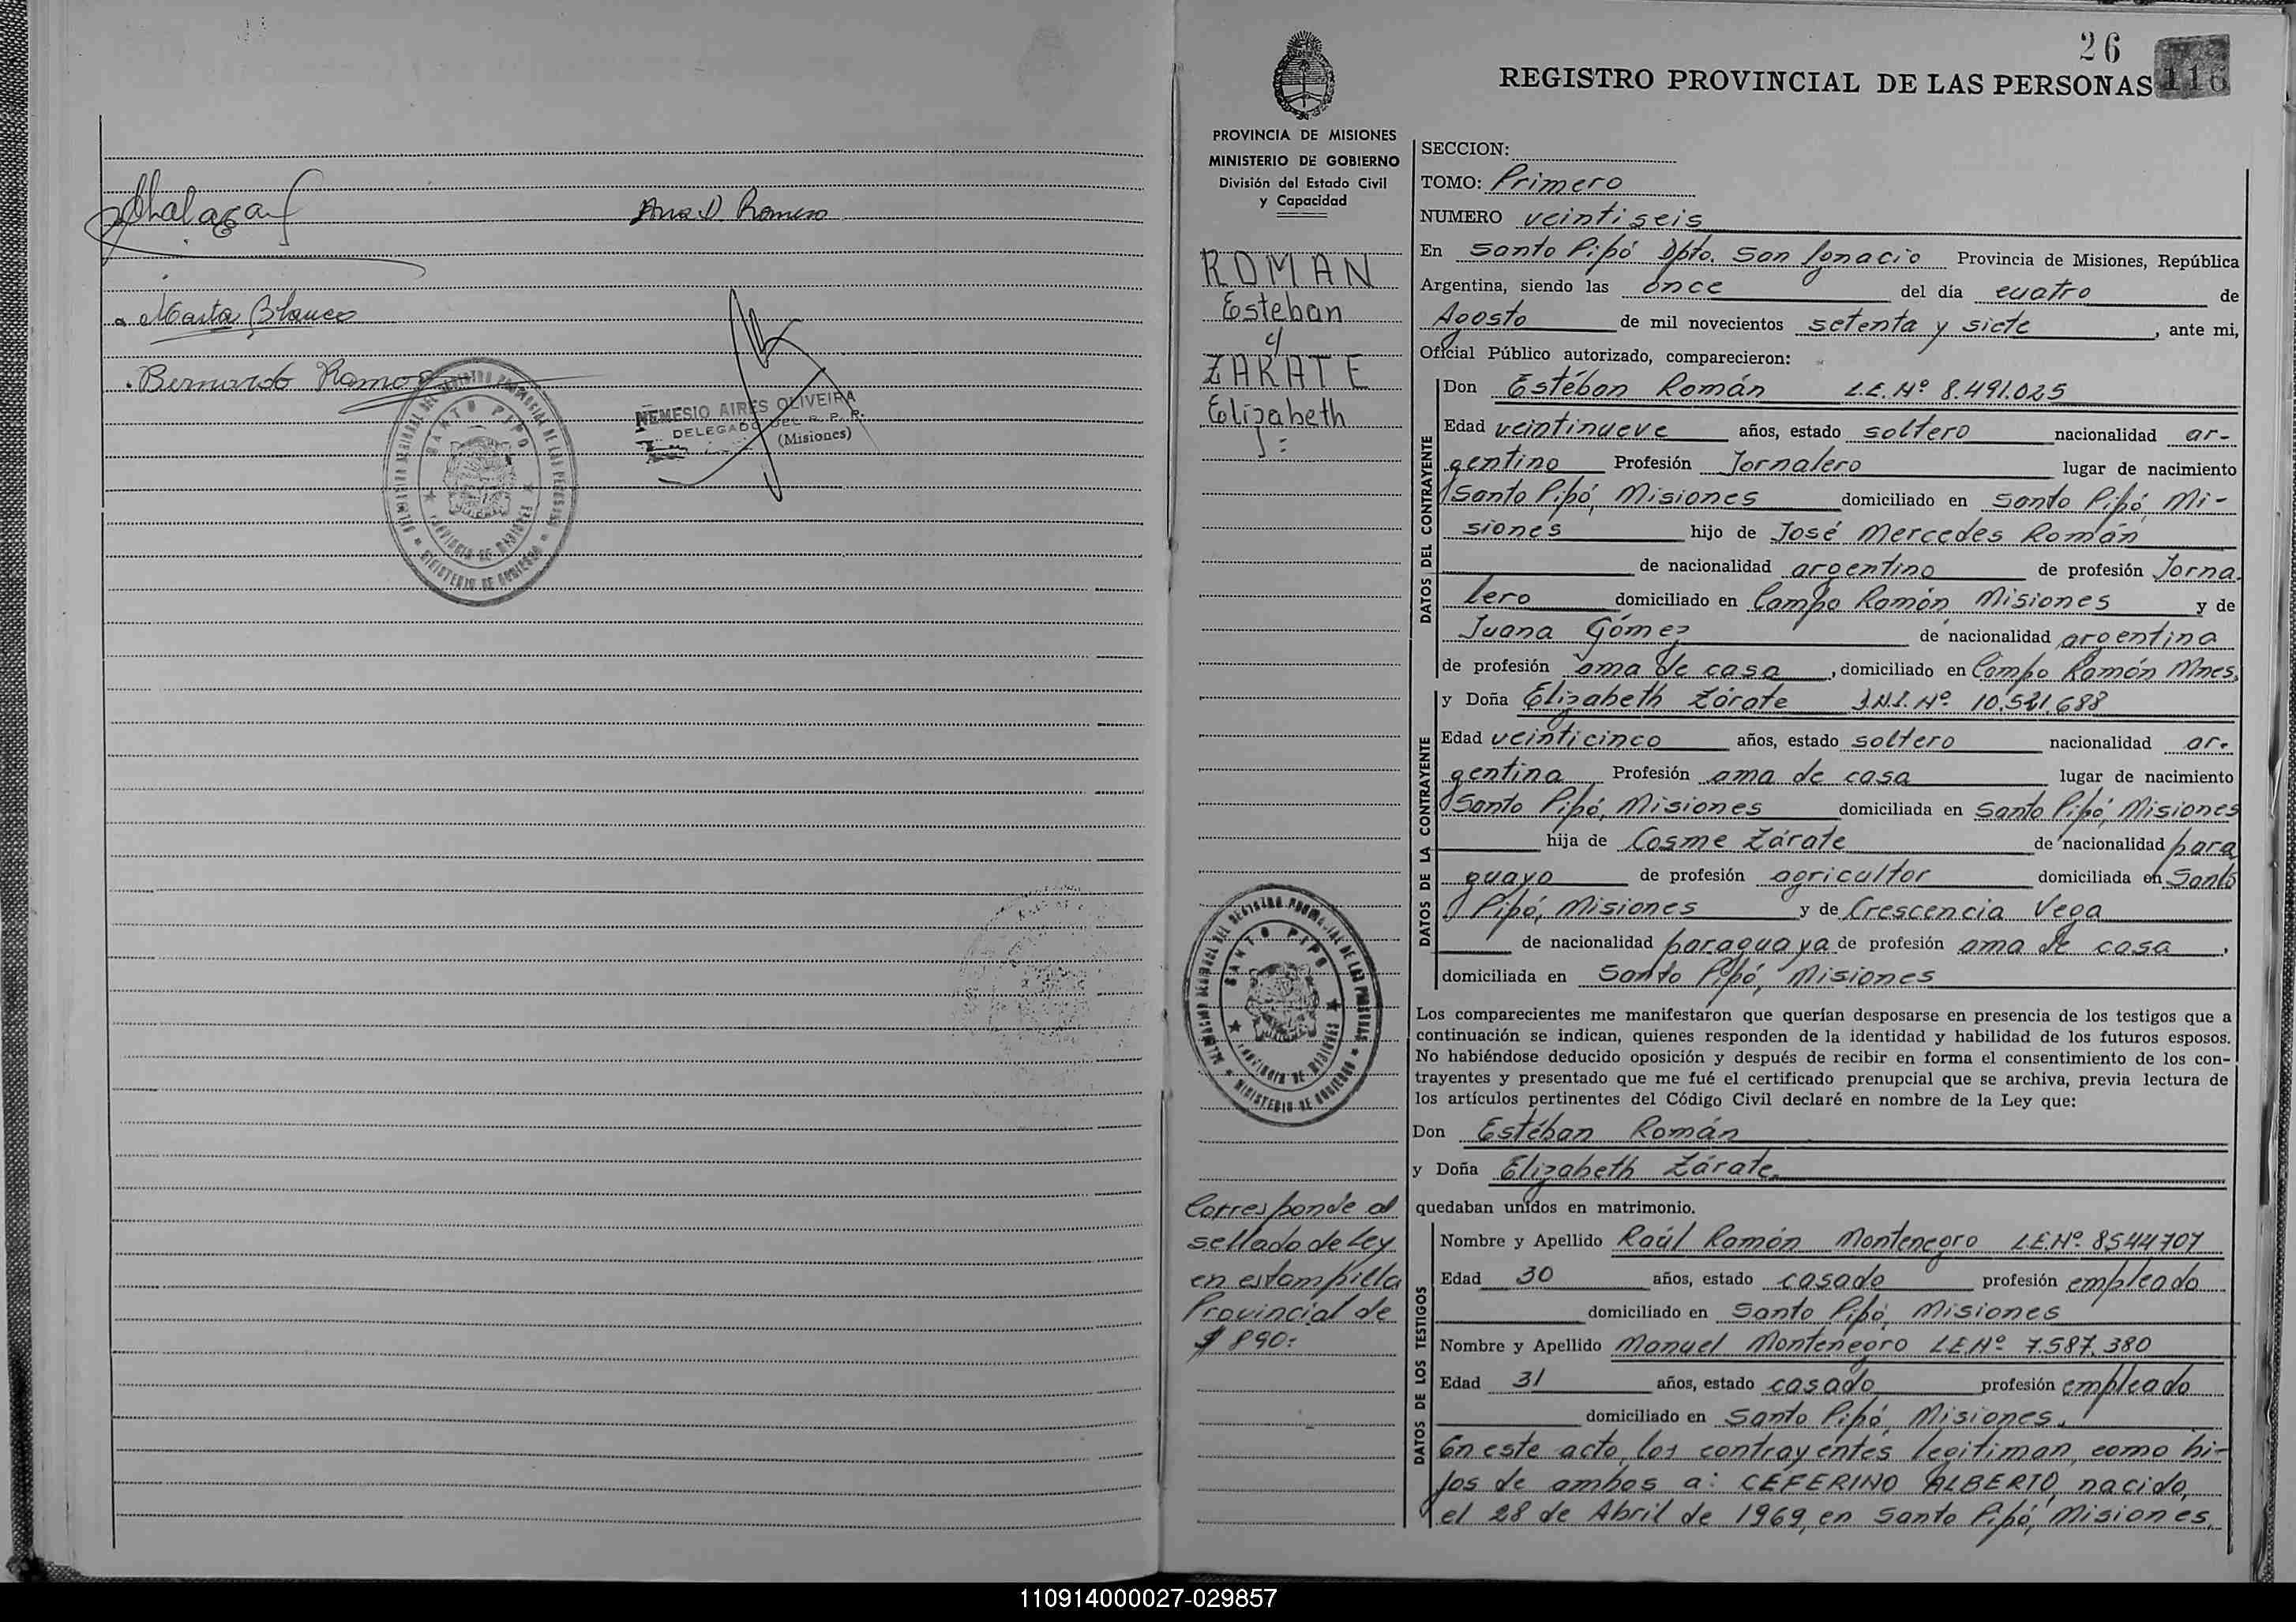 Ana D. Romero
Marta Blanco
Bernardo Ramos
NEMESIO AIRES OLIVEIRA
DELEGADO DEL R. P. P.
(Misiones)
SANTO PIPO
PROVINCIA DE MISIONES
MINISTERIO DE GOBIERNO
26
REGISTRO PROVINCIAL DE LAS PERSONAS 116
PROVINCIA DE MISIONES
MINISTERIO DE GOBIERNO
División del Estado Civil
y Capacidad
ROMAN
Esteban
c/
ZARATE
Elizabeth
SANTO PIPO
PROVINCIA DE MISIONES
MINISTERIO DE GOBIERNO
Corresponde al
sellado de Ley
en estampilla
Provincial de
$ 890:
SECCION:
TOMO: Primero
NUMERO veintiseis
En Santo Pipó Dpto. San Ignacio Provincia de Misiones, República
Argentina, siendo las once del día cuatro de
Agosto de mil novecientos setenta y siete, ante mi,
Oficial Público autorizado, comparecieron:
DATOS DEL CONTRAYENTE
Don Estéban Román L.E. Nº 8.491.025
Edad veintinueve años, estado soltero nacionalidad ar-
gentino Profesión Jornalero lugar de nacimiento
Santo Pipó, Misiones domiciliado en Santo Pipó Mi-
siones hijo de José Mercedes Román
de nacionalidad argentino de profesión Jorna
lero domiciliado en Campo Ramón Misiones y de
Juana Gómez de nacionalidad argentina
de profesión ama de casa, domiciliado en Campo Ramón Mnes.
DATOS DE LA CONTRAYENTE
y Doña Elizabeth Zárate D.N.I. Nº
Edad veinticinco años, estado soltero nacionalidad ar-
gentina Profesión ama de casa lugar de nacimiento
Santo Pipó, Misiones domiciliada en Santo Pipó, Misiones
hija de Cosme Zárate de nacionalidad para
guayo de profesión agricultor domiciliada en Santo
Pipó, Misiones y de Crescencia Vega
de nacionalidad paraguaya de profesión ama de casa,
domiciliada en Santo Pipó, Misiones
Los comparecientes me manifestaron que querían desposarse en presencia de los testigos que a
continuación se indican, quienes responden de la identidad y habilidad de los futuros esposos.
No habiéndose deducido oposición y después de recibir en forma el consentimiento de los con-
trayentes y presentado que me fué el certificado prenupcial que se archiva, previa lectura de
los artículos pertinentes del Código Civil declaré en nombre de la Ley que:
Don Estéban Román
y Doña Elizabeth Zárate
quedaban unidos en matrimonio.
DATOS DE LOS TESTIGOS
Nombre y Apellido Raúl Ramón Montenegro L.E.Nº 8544707
Edad 30 años, estado casado profesión empleado
domiciliado en Santo Pipó, Misiones
Nombre y Apellido Manuel Montenegro L.E.Nº 7.587.380
Edad 31 años, estado casado profesión empleado
domiciliado en Santo Pipó, Misiones.
En este acto, los contrayentes legitiman, como hi-
jos de ambos a: CEFERINO ALBERTO, nacido,
el 28 de Abril de 1969, en Santo Pipó, Misiones,
110914000027-029857